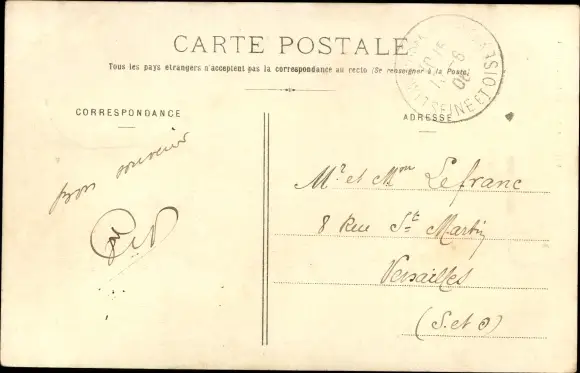 CARTE POSTALE
Tous les pays étrangers n'acceptent pas la correspondance au recto (Se renseigner à la Poste)
CORRESPONDANCE
ADRESSE
Bon souvenir
Mr et Mme Lefranc
8 Rue St Martin
Versailles
(S. et O)
SEINE ET OISE